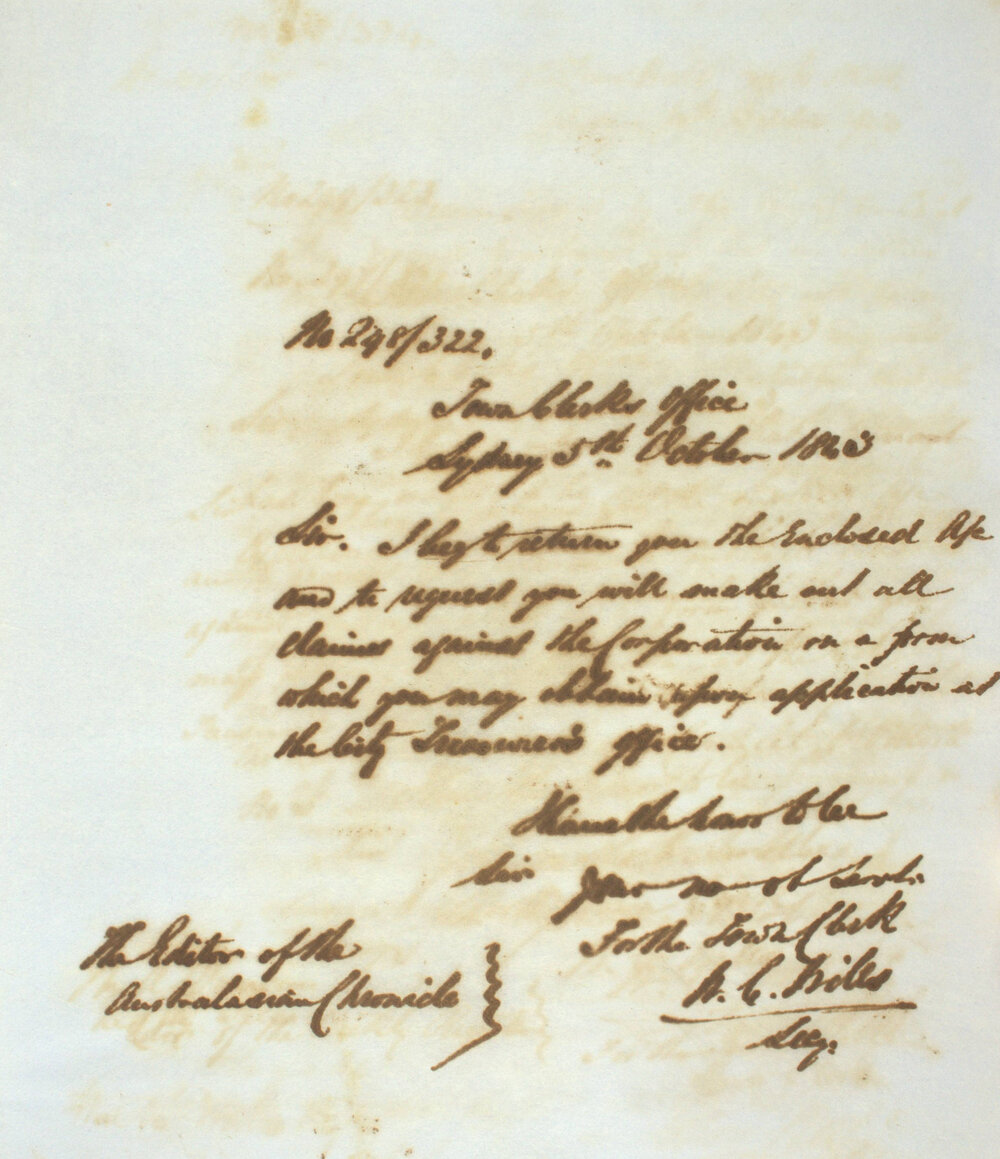 No 248/322.
Town Clerks office
Sydney 5th October 1843
Sir. I beg to return you the Enclosed
and to request you will make out all
claims against the Corporation on a form
which you may obtain upon application at
the City Treasurers office.
I have the honor to be
Sir your mo ob Servt.
For the Town Clerk
The Editor of the
Australasian Chronicle
W. C. Wills